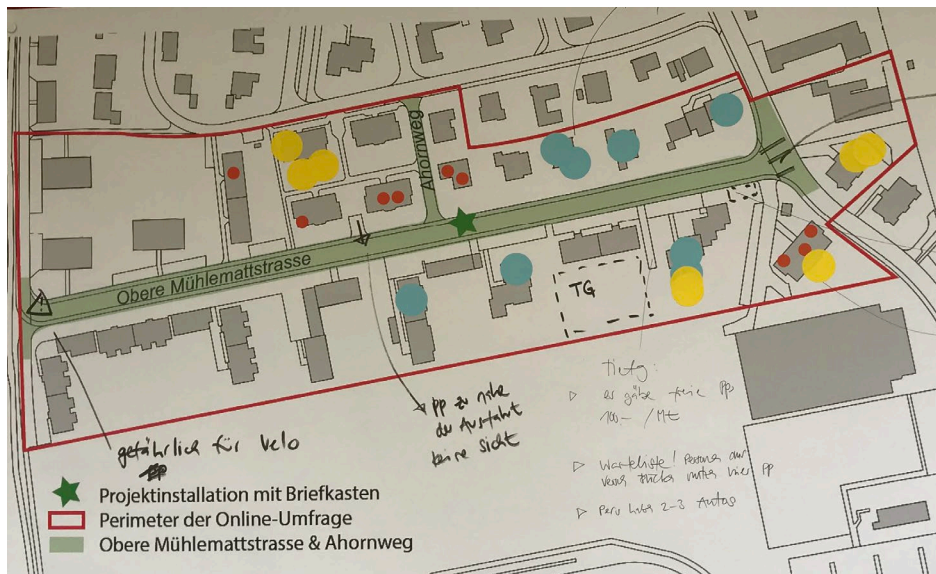 Ahornweg
Obere Mühlemattstrasse
TG
gefährlich für Velo
PP zu nahe
der Ausfahrt
keine Sicht
Tiefg:
▷ es gäbe freie PP
100.– / Mt
▷ Warteliste! Personen
▷ 2–3 Autos
Projektinstallation mit Briefkasten
Perimeter der Online-Umfrage
Obere Mühlemattstrasse & Ahornweg